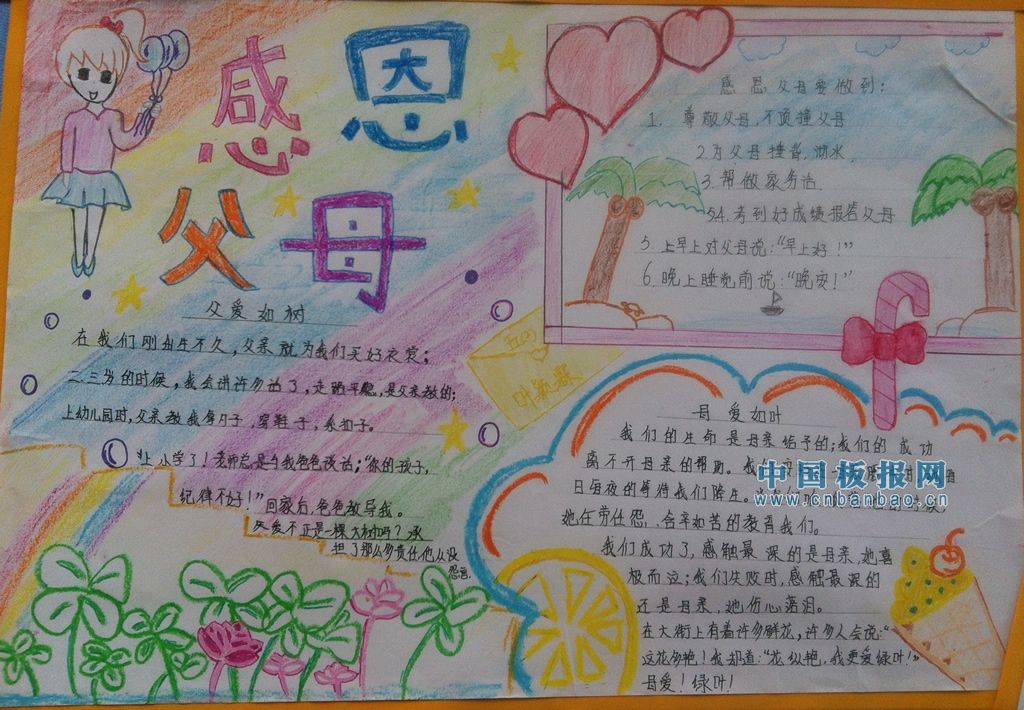 感恩
父母
父爱如树
在我们刚出生不久,父亲就为我们买好衣裳;
二三岁的时候,我会讲许多话了,走路平稳,是父亲教的;
上幼儿园时,父亲教我剪月子,穿鞋子,系扣子。
上小学了!老师总是与我爸爸谈话;“你的孩子,
纪律不好!”回家后,爸爸教导我。
父爱不正是一棵大树吗?承
担了那么多责任,他从没
怨言.
感恩父母要做到:
1. 尊敬父母,不顶撞父母
2.为父母捶背,
3.帮做家务活
4.考到好成绩报告父母
5.上早上对父母说:“早上好!”
6.晚上睡觉前说:“晚安!”
母爱如叶
我们的生命是母亲给予的;我们的成功
离不开母亲的帮助。我们
日每夜的等待我们降生。
她任劳任怨、含辛如苦的教育我们。
我们成功了,感触最深的是母亲,她喜
极而泣;我们失败时,感触最深的
还是母亲,她伤心落泪。
在大街上有着许多鲜花,许多人会说:“
这花多艳!我却道:“花纵艳,我更爱绿叶!”
母爱!绿叶!
中国板报网
www.cnbanbao.cn